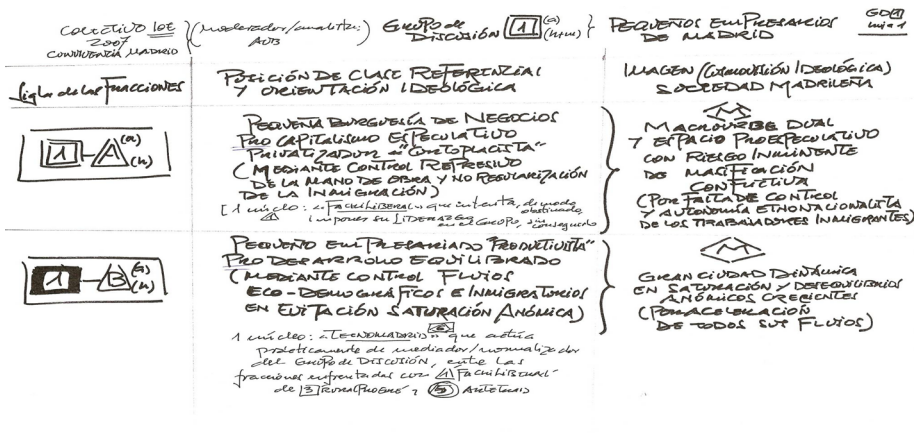 COLECTIVO IOÉ
2007
CONVIVENCIA MADRID
(moderador/analista:
GRUPO DE
DISCUSIÓN 1 (a)
(h+m)
PEQUEÑOS EMPRESARIOS
DE MADRID
GD1
Sigla de las FRACCIONES
POSICIÓN DE CLASE REFERENCIAL
Y ORIENTACIÓN IDEOLÓGICA
IMAGEN (COSMOVISIÓN IDEOLÓGICA)
SOCIEDAD MADRILEÑA
1 - A (a)
(h)
PEQUEÑA BURGUESÍA DE NEGOCIOS
PRO CAPITALISMO ESPECULATIVO
PRIVATIZADOR "CORTOPLACISTA"
(MEDIANTE CONTROL REPRESIVO
DE LA MANO DE OBRA Y NO REGULARIZACIÓN
DE LA INMIGRACIÓN)
[1 núcleo: "FACHILIBERAL" que intenta, de modo
obstinado,
1 imponer su LIDERAZGO
en el GRUPO, sin conseguirlo
M
MACROURBE DUAL
Y ESPACIO PROESPECULATIVO
CON RIESGO INMINENTE
DE MASIFICACIÓN
CONFLICTIVA
(POR FALTA DE CONTROL
Y AUTONOMÍA ETNONACIONALISTA
DE LOS TRABAJADORES INMIGRANTES)
1 - B (a)
(h)
PEQUEÑO EMPRESARIADO "PRODUCTIVISTA"
PRO DESARROLLO EQUILIBRADO
(MEDIANTE CONTROL FLUJOS
ECO-DEMOGRÁFICOS E INMIGRATORIOS
EN EVITACIÓN SATURACIÓN ANÓMICA)
1 núcleo: "TECNOMADRID" que actúa
prácticamente de mediador/normalizador
del GRUPO DE DISCUSIÓN, entre las
fracciones enfrentadas con 1 FACHILIBERAL
de 3 y 5
M
GRAN CIUDAD DINÁMICA
EN SATURACIÓN Y DESEQUILIBRIOS
ANÓMICOS CRECIENTES
(POR ACELERACIÓN
DE TODOS SUS FLUJOS)